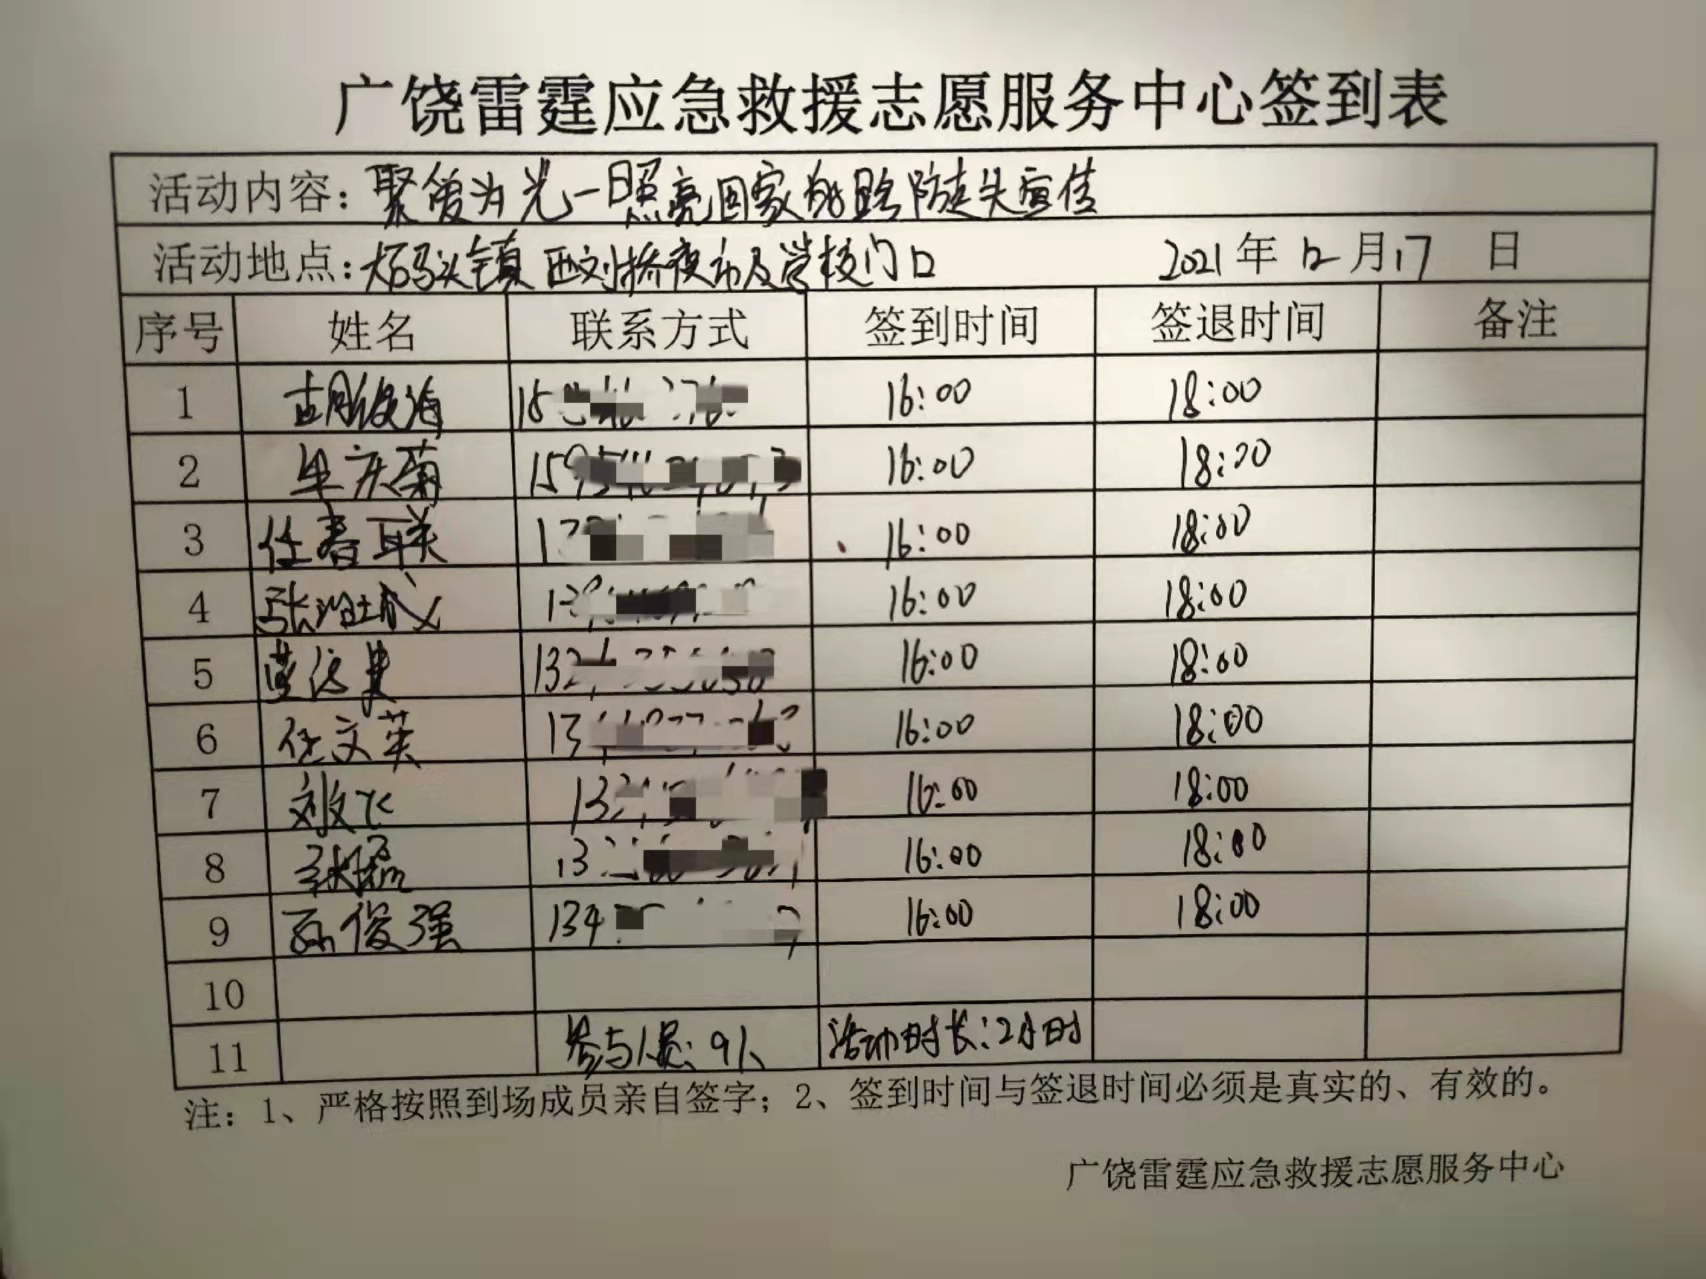 广饶雷霆应急救援志愿服务中心签到表
活动内容：聚爱为光一照亮回家的路防走失宣传
活动地点：大码头镇西刘桥夜市及学校门口 2021年12月17日
序号 姓名 联系方式 签到时间 签退时间 备注
1 胡俊海 16:00 18:00
2 牟庆菊 16:00 18:00
3 任春联 16:00 18:00
4 张 16:00 18:00
5 16:00 18:00
6 任文英 16:00 18:00
7 刘文飞 16:00 18:00
8 张磊 16:00 18:00
9 孙俊强 134 16:00 18:00
10
11 参与人员：9人 活动时长：2小时
注：1、严格按照到场成员亲自签字；2、签到时间与签退时间必须是真实的、有效的。
广饶雷霆应急救援志愿服务中心